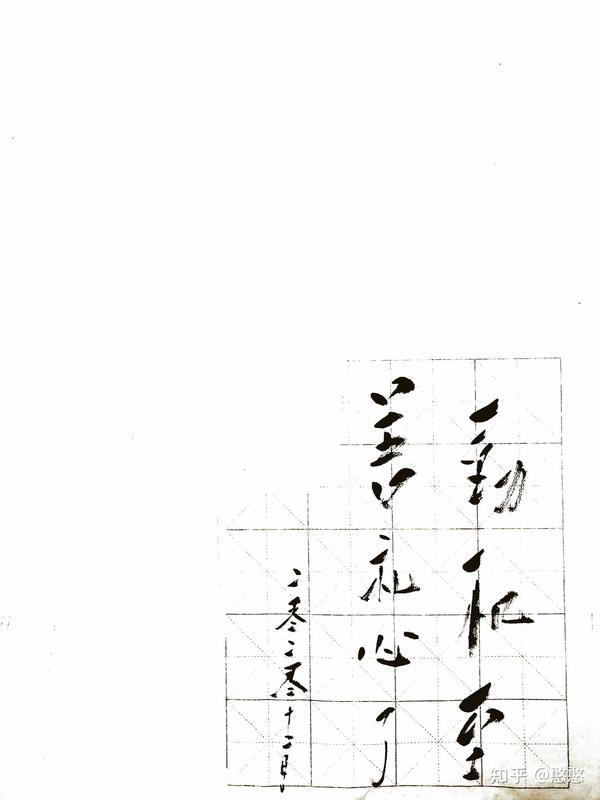 動机至
善私心了
二零二零十二月
知乎 @憨憨